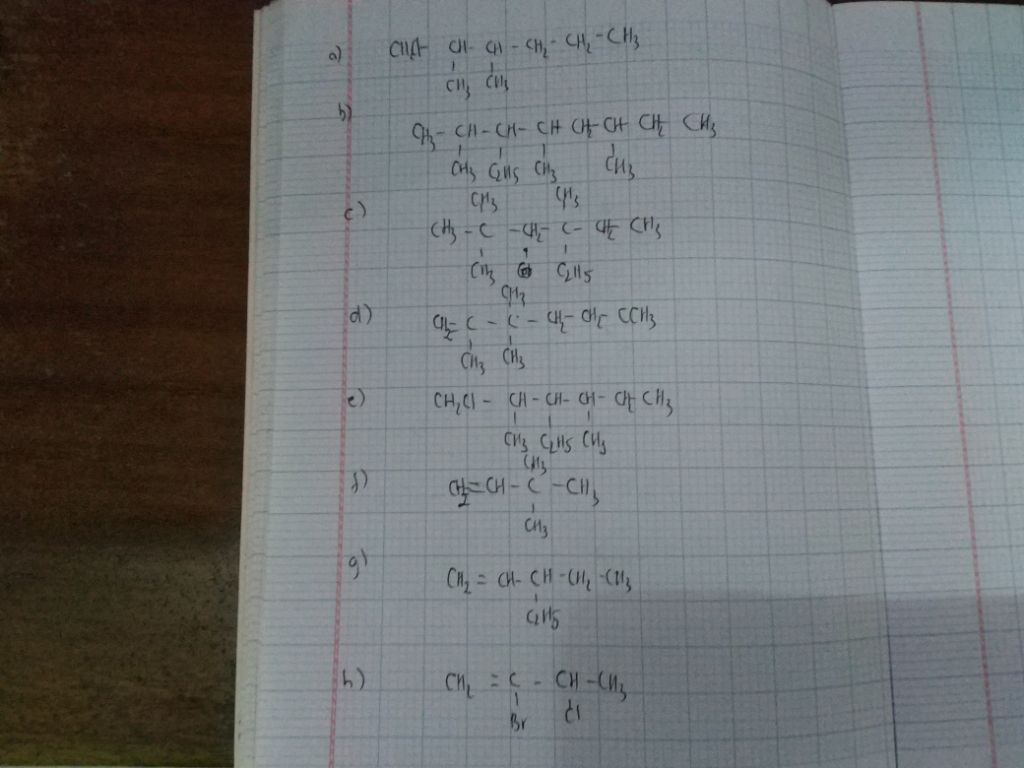 a) CH3- CH- CH - CH2- CH2 - CH3
CH3 CH3
b)
CH3- CH - CH - CH CH2- CH CH2 CH3
CH3 C2H5 CH3 CH3
CH3 CH3
c) CH3 - C - CH2 - C - CH2 CH3
CH3 C2H5
CH3
d) CH2= C - C - CH2- CH2- CCH3
CH3 CH3
e) CH2Cl - CH - CH - CH - CH2- CH3
CH3 C2H5 CH3
CH3
f) CH2=CH - C - CH3
CH3
g) CH2 = CH- CH - CH2 - CH3
C2H5
h) CH2 = C - CH - CH3
Br Cl